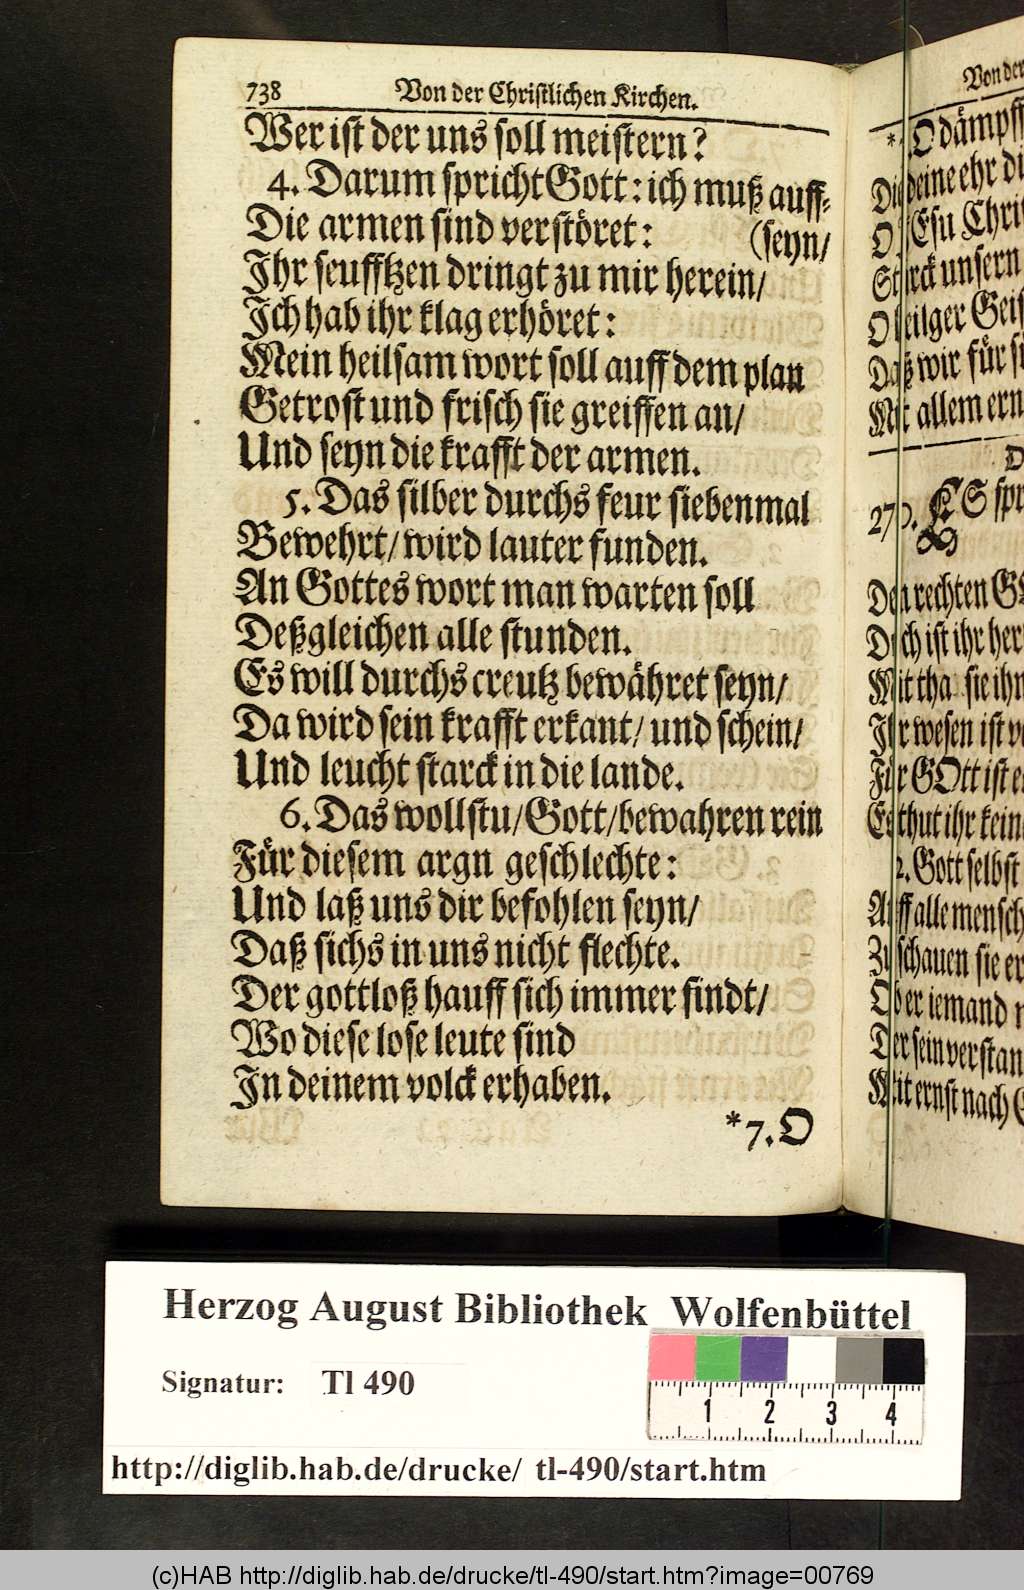 738 Von der Christlichen Kirchen.
Wer ist der uns soll meistern?
4. Darum spricht Gott: ich muß auff⸗
Die armen sind verstöret: (seyn/
Ihr seufftzen dringt zu mir herein/
Ich hab ihr klag erhöret:
Mein heilsam wort soll auff dem plan
Getrost und frisch sie greiffen an/
Und seyn die krafft der armen.
5. Das silber durchs feur siebenmal
Bewehrt/ wird lauter funden.
An Gottes wort man warten soll
Deßgleichen alle stunden.
Es will durchs creutz bewähret seyn/
Da wird sein krafft erkant/ und schein/
Und leucht starck in die lande.
6. Das wollstu/ Gott/ bewahren rein
Für diesem argn geschlechte:
Und laß uns dir befohlen seyn/
Daß sichs in uns nicht flechte.
Der gottloß hauff sich immer findt/
Wo diese lose leute sind
In deinem volck erhaben.
*7. O
Von der
*7. O dämpff
deine ehr
O JEsu
Starck unsern
O heilger
Daß wir für
Mit allem
270. ES
Den rechten
Doch ist ihr
Mit that sie ihn
Ihr wesen ist
Für GOtt ist
Es thut ihr
2. Gott selbst
Auff alle
Zu schauen sie
Ob er iemand
Der sein
Mit ernst nach
Herzog August Bibliothek Wolfenbüttel
Signatur: Tl 490
1 2 3 4
http://diglib.hab.de/drucke/ tl-490/start.htm
(c)HAB http://diglib.hab.de/drucke/tl-490/start.htm?image=00769